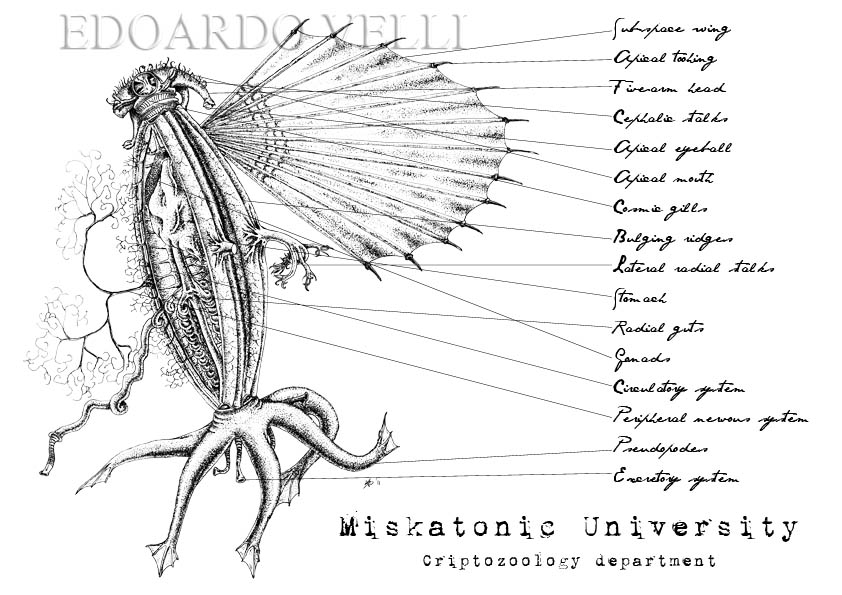 EDOARDO VELLI
Subspace wing
Apical toohing
Firearm head
Cephalic stalks
Apical eyeball
Apical mouth
Cosmic gills
Bulging ridgers
Lateral radial stalks
Stomach
Radial guts
Gonads
Circulatory system
Peripheral nervous system
Pseudopoders
Excretory system
Miskatonic University
Criptozoology department